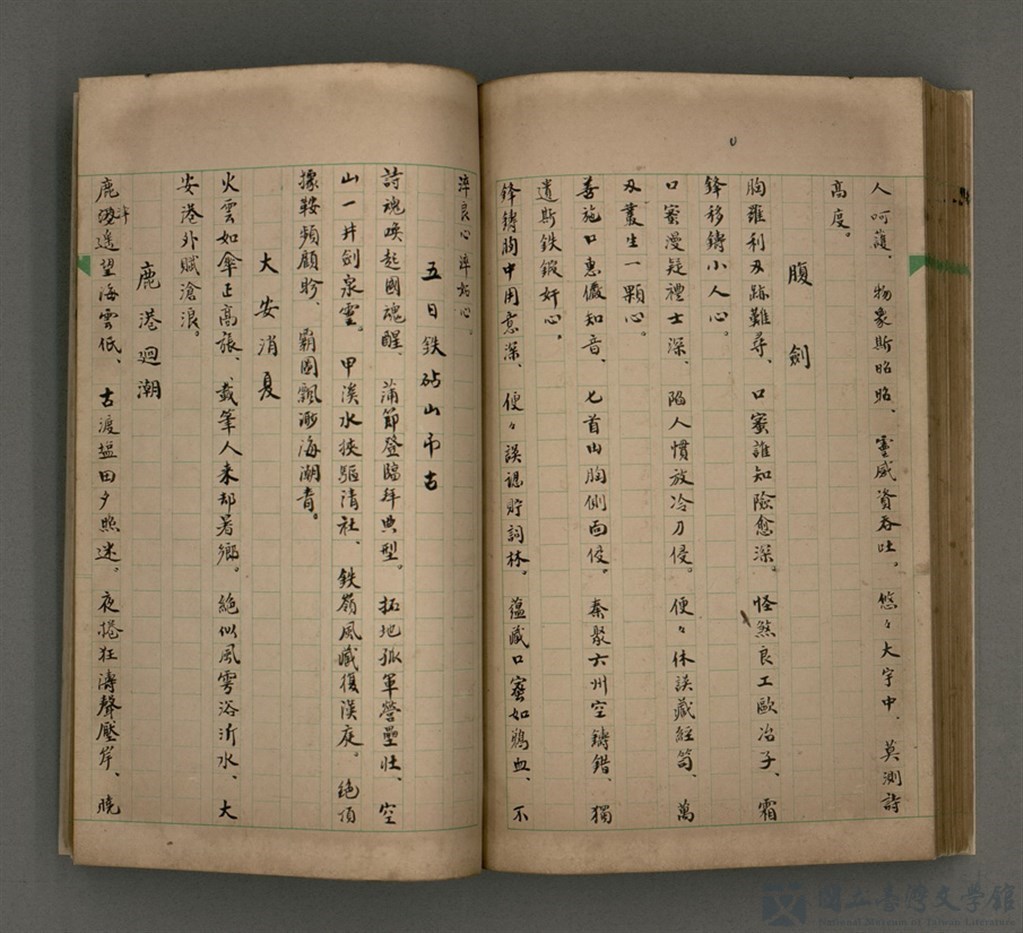 人呵護、物象斯昭昭、靈威資吞吐。悠々大宇中、莫測詩
高度。
腹劍
胸羅利刃跡難尋、口蜜誰知險愈深。怪煞良工歐冶子、霜
鋒移鑄小人心。
口蜜漫疑禮士深、陷人慣放冷刀侵。便々休誤藏經笥、萬
刃叢生一顆心。
善施口惠儼知音、匕首山胸側面侵。秦聚六州空鑄錯、獨
遺斯鉄鍛奸心。
鋒鑄胸中用意深、便々誤認貯詞林。蘊藏口蜜如鴆血、不
淬良心淬奸心。
五日鉄砧山弔古
詩魂喚起國魂醒、蒲節登臨拜典型。拓地孤軍營壘壯、空
山一井劍泉靈。甲溪水挾驅清社、鉄嶺風瞻復漢庭。絕頂
據鞍頻顧盼、霸圖飄渺海潮青。
大安消夏
火雲如傘正高張、載筆人来却暑鄉。絕似風雩浴沂水、大
安港外賦滄浪。
鹿港廻潮
鹿津遥望海雲低、古渡塭田夕照迷。夜捲狂濤聲壓岸、曉
國立臺灣文學館
National Museum of Taiwan Literature